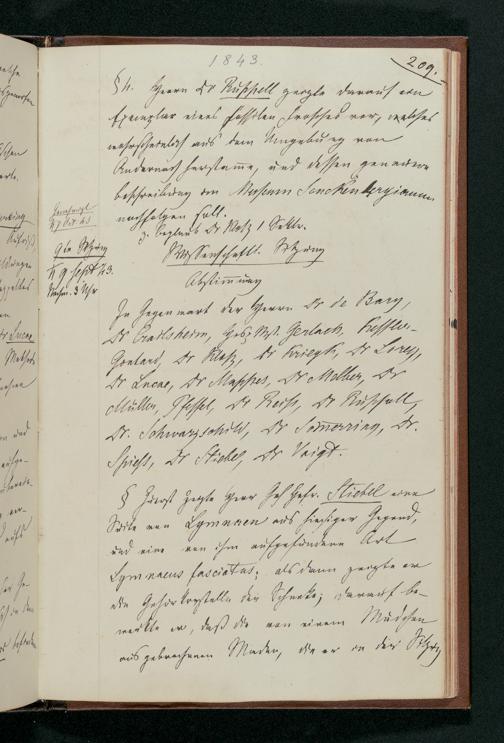 1843.
209.
§ 4. Herr Dr Rüppell zeigte darauf ein
Exemplar eines fossilen Frosches vor, welches
wahrscheinlich aus dem Umgebung von
Andernach herstamme, und dessen genauere
Beschreibung im Museum Senckenbergianum
nachfolgen soll.
z. beglaub. Dr Kloß 1 Sekr.
9te Sitzung
d 9 Sept 43.
Nachm. 3 Uhr
Wissenschaftl. Sitzung
Abstimmung
In Gegenwart der Herrn Dr de Bary,
Dr Crailsheim, Gerlach, Keßler-
Gontard, Dr Kloß, Dr Kriegk, Dr Lorey,
Dr Lucae, Dr Mappes, Dr Melber, Dr
Müller, Pfeffel, Dr Reiß, Dr Rüppell,
Dr. Schwarzschild, Dr Sömmerring, Dr.
Spieß, Dr Stiebel, Dr Voigt.
§ Zuerst zeigte Herr Geh Hofr. Stiebel eine
Suite von Lymnaeen aus hiesiger Gegend,
und eine von ihm aufgefundene Art
Lymnaeus fasciatus; alsdann zeigte er
die Gehörkrystalle der Schnecke; darauf be-
merkte er, daß die von einem Mädchen
ausgebrochenen Maden, die er in der Sitzung